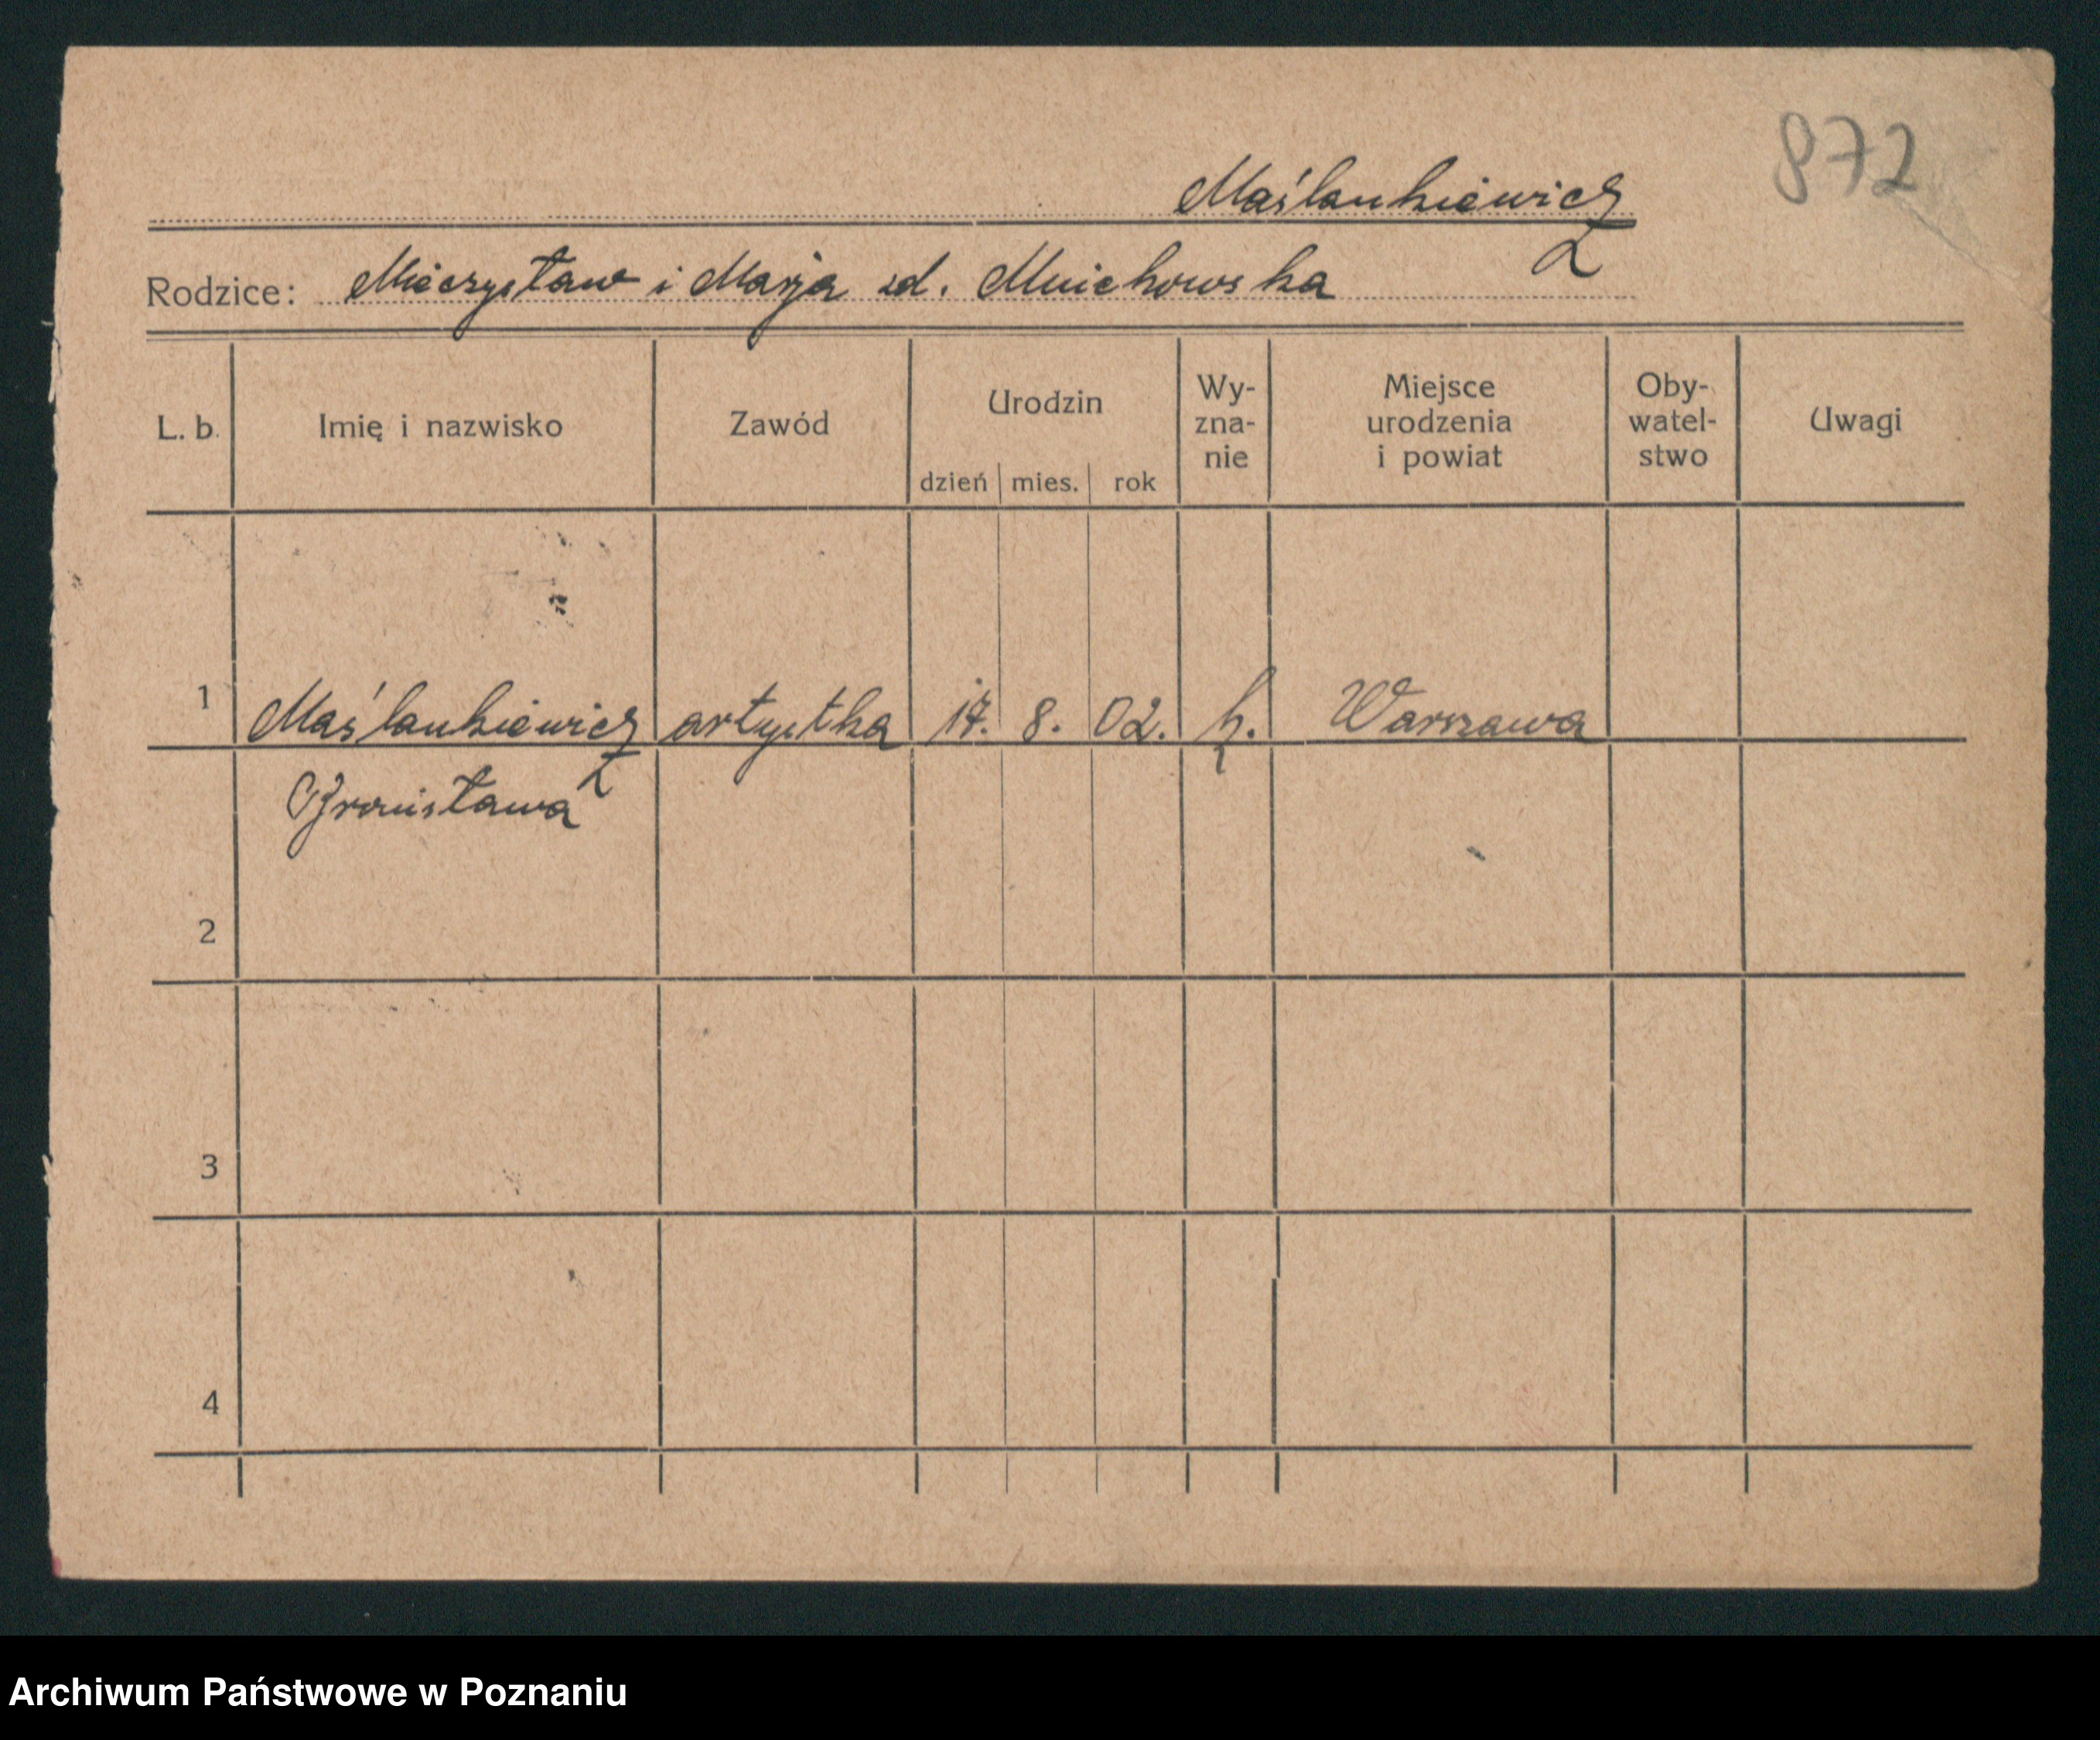 872
Maślankiewicz
Rodzice: Mieczysław i Marja zd. Mnichowska
L. b. Imię i nazwisko Zawód Urodzin dzień mies. rok Wy-
zna-
nie Miejsce
urodzenia
i powiat Oby-
watel-
stwo Uwagi
1 Maślankiewicz artystka 17. 8. 02. k. Warszawa
Bronisława
2
3
4
Archiwum Państwowe w Poznaniu